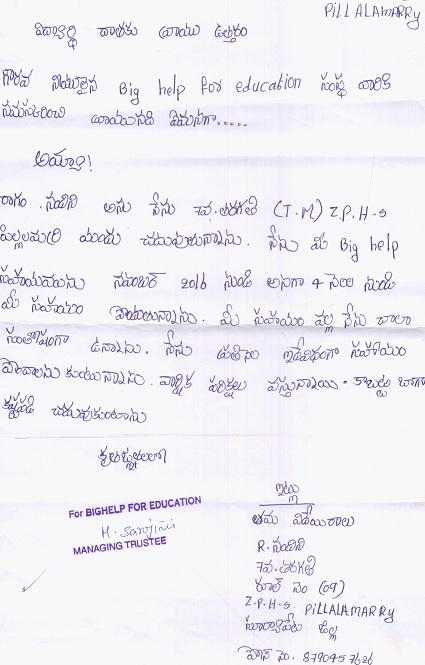 PILLALAMARRY
విద్యార్థి దాతకు వ్రాయు ఉత్తరం
గౌరవ నియులైన Big help for education సంస్థ వారికి
నమస్కరించి వ్రాయునది ఏమనగా.....
అయ్యా!
రాగం. నందిని అను నేను 7వ.తరగతి (T.M) Z.P.H-S
పిల్లలమర్రి యందు చదువుతున్నాను. నేను మీ Big help
సహాయమును నవంబర్ 2016 నుండి అనగా 4 నెలల నుండి
మీ సహాయం పొందుతున్నాను. మీ సహాయం వల్ల నేను చాలా
సంతోషంగా ఉన్నాను. నేను ప్రతినెల ఇదేవిధంగా సహాయం
పొందాలను కుంటున్నాను. వార్షిక పరీక్షలు వస్తున్నాయి. కాబట్టి బాగా
కష్టపడి చదువుకుంటాను
కృతజ్ఞతలతో
ఇట్లు
తమ విదేయురాలు
R. నందిని
7వ.తరగతి
రూల్ నెం (09)
Z.P.H.S. PILLALAMARRY
సూర్యాపేట జిల్లా
ఫోన్ నెం. 8790457626
For BIGHELP FOR EDUCATION
MANAGING TRUSTEE